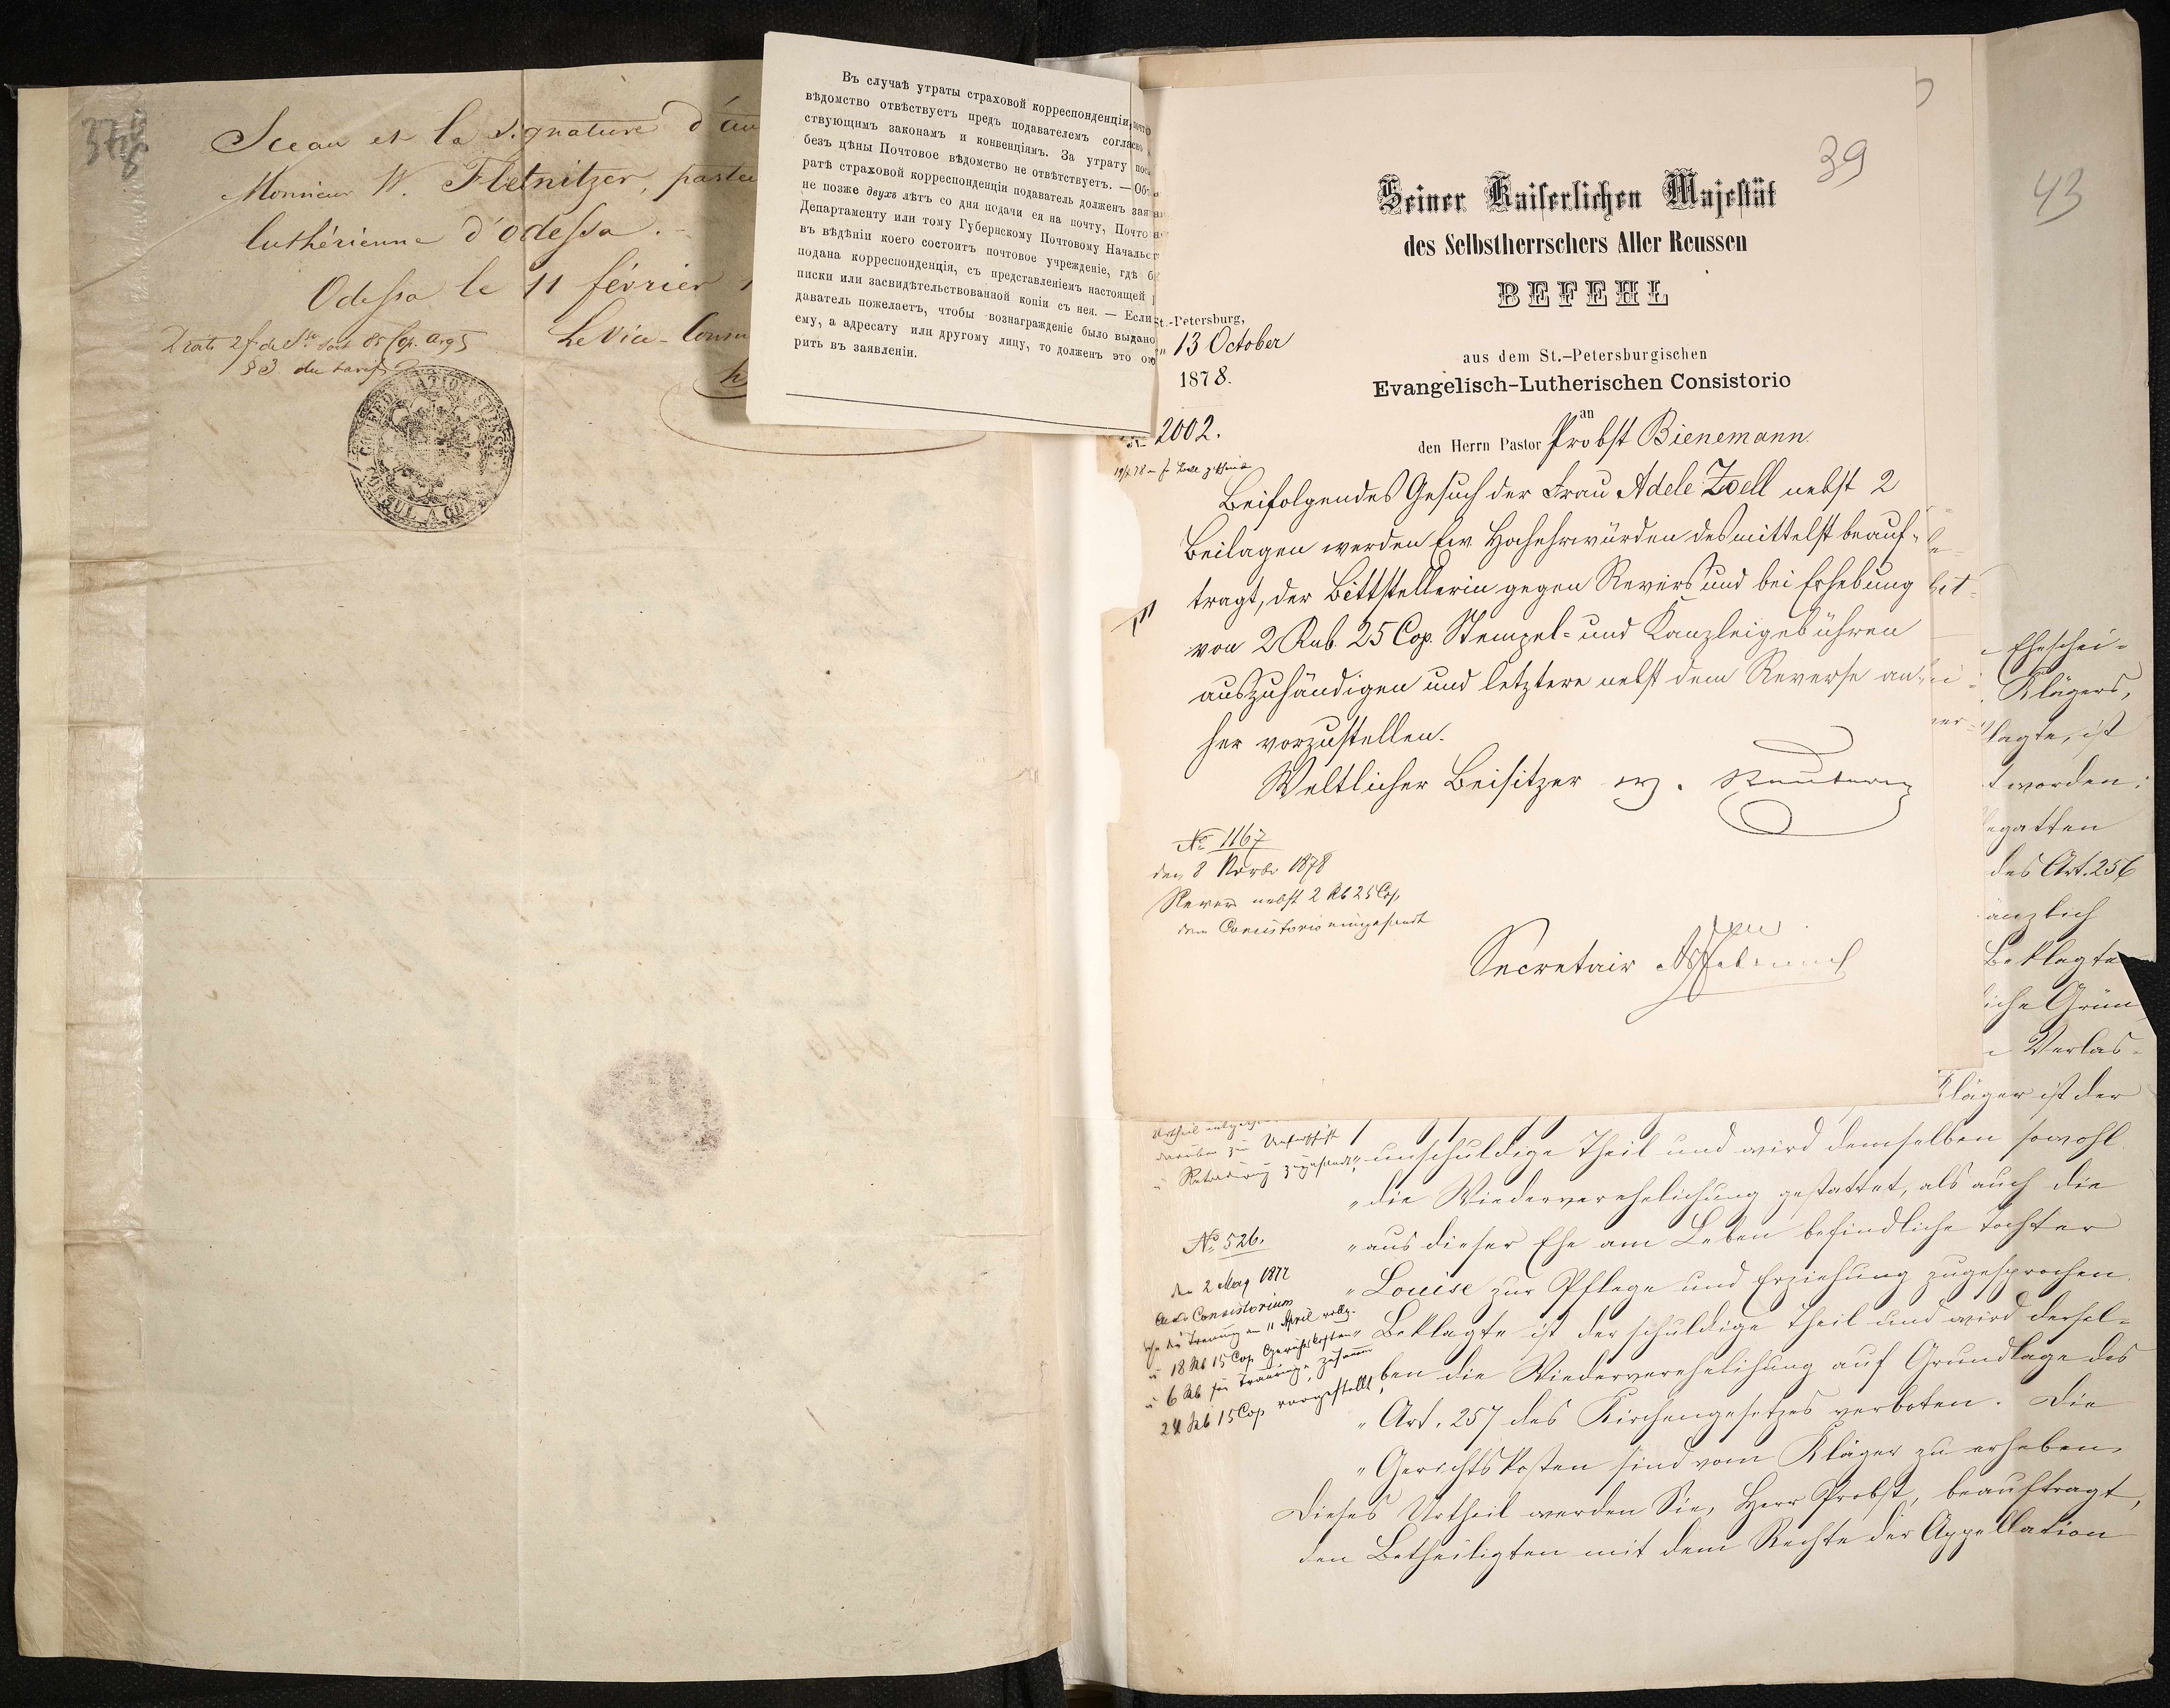 37
Sceau et la signature d'au
Monsieur W. Fletnitzer, paste
luthérienne d'Odessa.
Odessa le 11 février 1
§ 3 du tarif
Le Vice-Consu
Въ случаѣ утраты страховой корреспонденціи, почто
вѣдомство отвѣтствуетъ предъ подавателемъ согласно
ствующимъ законамъ и конвенціямъ. За утрату пос
безъ цѣны Почтовое вѣдомство не отвѣтствуетъ. — Объ
ратѣ страховой корреспонденціи подаватель долженъ заяв
не позже двухъ лѣтъ со дня подачи ея на почту, Почто
Департаменту или тому Губернскому Почтовому Начальс
въ вѣдѣніи коего состоитъ почтовое учрежденіе, гдѣ б
подана корреспонденція, съ представленіемъ настоящей
писки или засвидѣтельствованной копіи съ нея. — Если
даватель пожелаетъ, чтобы вознагражденіе было выдано
ему, а адресату или другому лицу, то долженъ это ого
рить въ заявленіи.
39
Seiner Kaiserlichen Majestät
des Selbstherrschers Aller Reussen
BEFEHL
aus dem St.-Petersburgischen
Evangelisch-Lutherischen Consistorio
an
den Herrn Pastor Probst Bienemann.
St.-Petersburg,
13 October
1878.
2002.
Beifolgendes Gesuch der Frau Adele Zoell nebst 2
Beilagen werden Ew. Hochehrwürden desmittelst beauf-
tragt, der Bittstellerin gegen Revers und bei Erhebung
von 2 Rub. 25 Cop. Stempel- und Kanzleigebühren
auszuhändigen und letztere nebst dem Reverse an-
her vorzustellen.
Weltlicher Beisitzer
№ 1167
den 8 Novbr 1878
Revers nebst 2 Rb 25 Cop.
dem Consistorio eingesandt
Secretair
43
Eheschei-
Klägers,
klagte, ist
t worden;
egatten
des Art. 256
änzlich
Beklagte
iche Grün
Verlas-
Kläger ist der
„unschuldige Theil und wird demselben sowohl
„die Wiederverehelichung gestattet, als auch die
„aus dieser Ehe am Leben befindliche Tochter
„Louise zur Pflege und Erziehung zugesprochen.
„Beklagte ist der schuldige Theil und wird dersel-
„ben die Wiederverehelichung auf Grundlage des
„Art. 257 des Kirchengesetzes verboten. Die
„Gerichtskosten sind vom Kläger zu erheben.
Dieses Urtheil werden Sie, Herr Probst, beauftragt,
den Betheiligten mit dem Rechte der Appellation
№ 526.
den 2 May 1877
Consistorium
am 11 April
u 18 Rb 15 Cop Gerichtskosten
u 6 Rb für zusammen
24 Rb 15 Cop vorgestellt